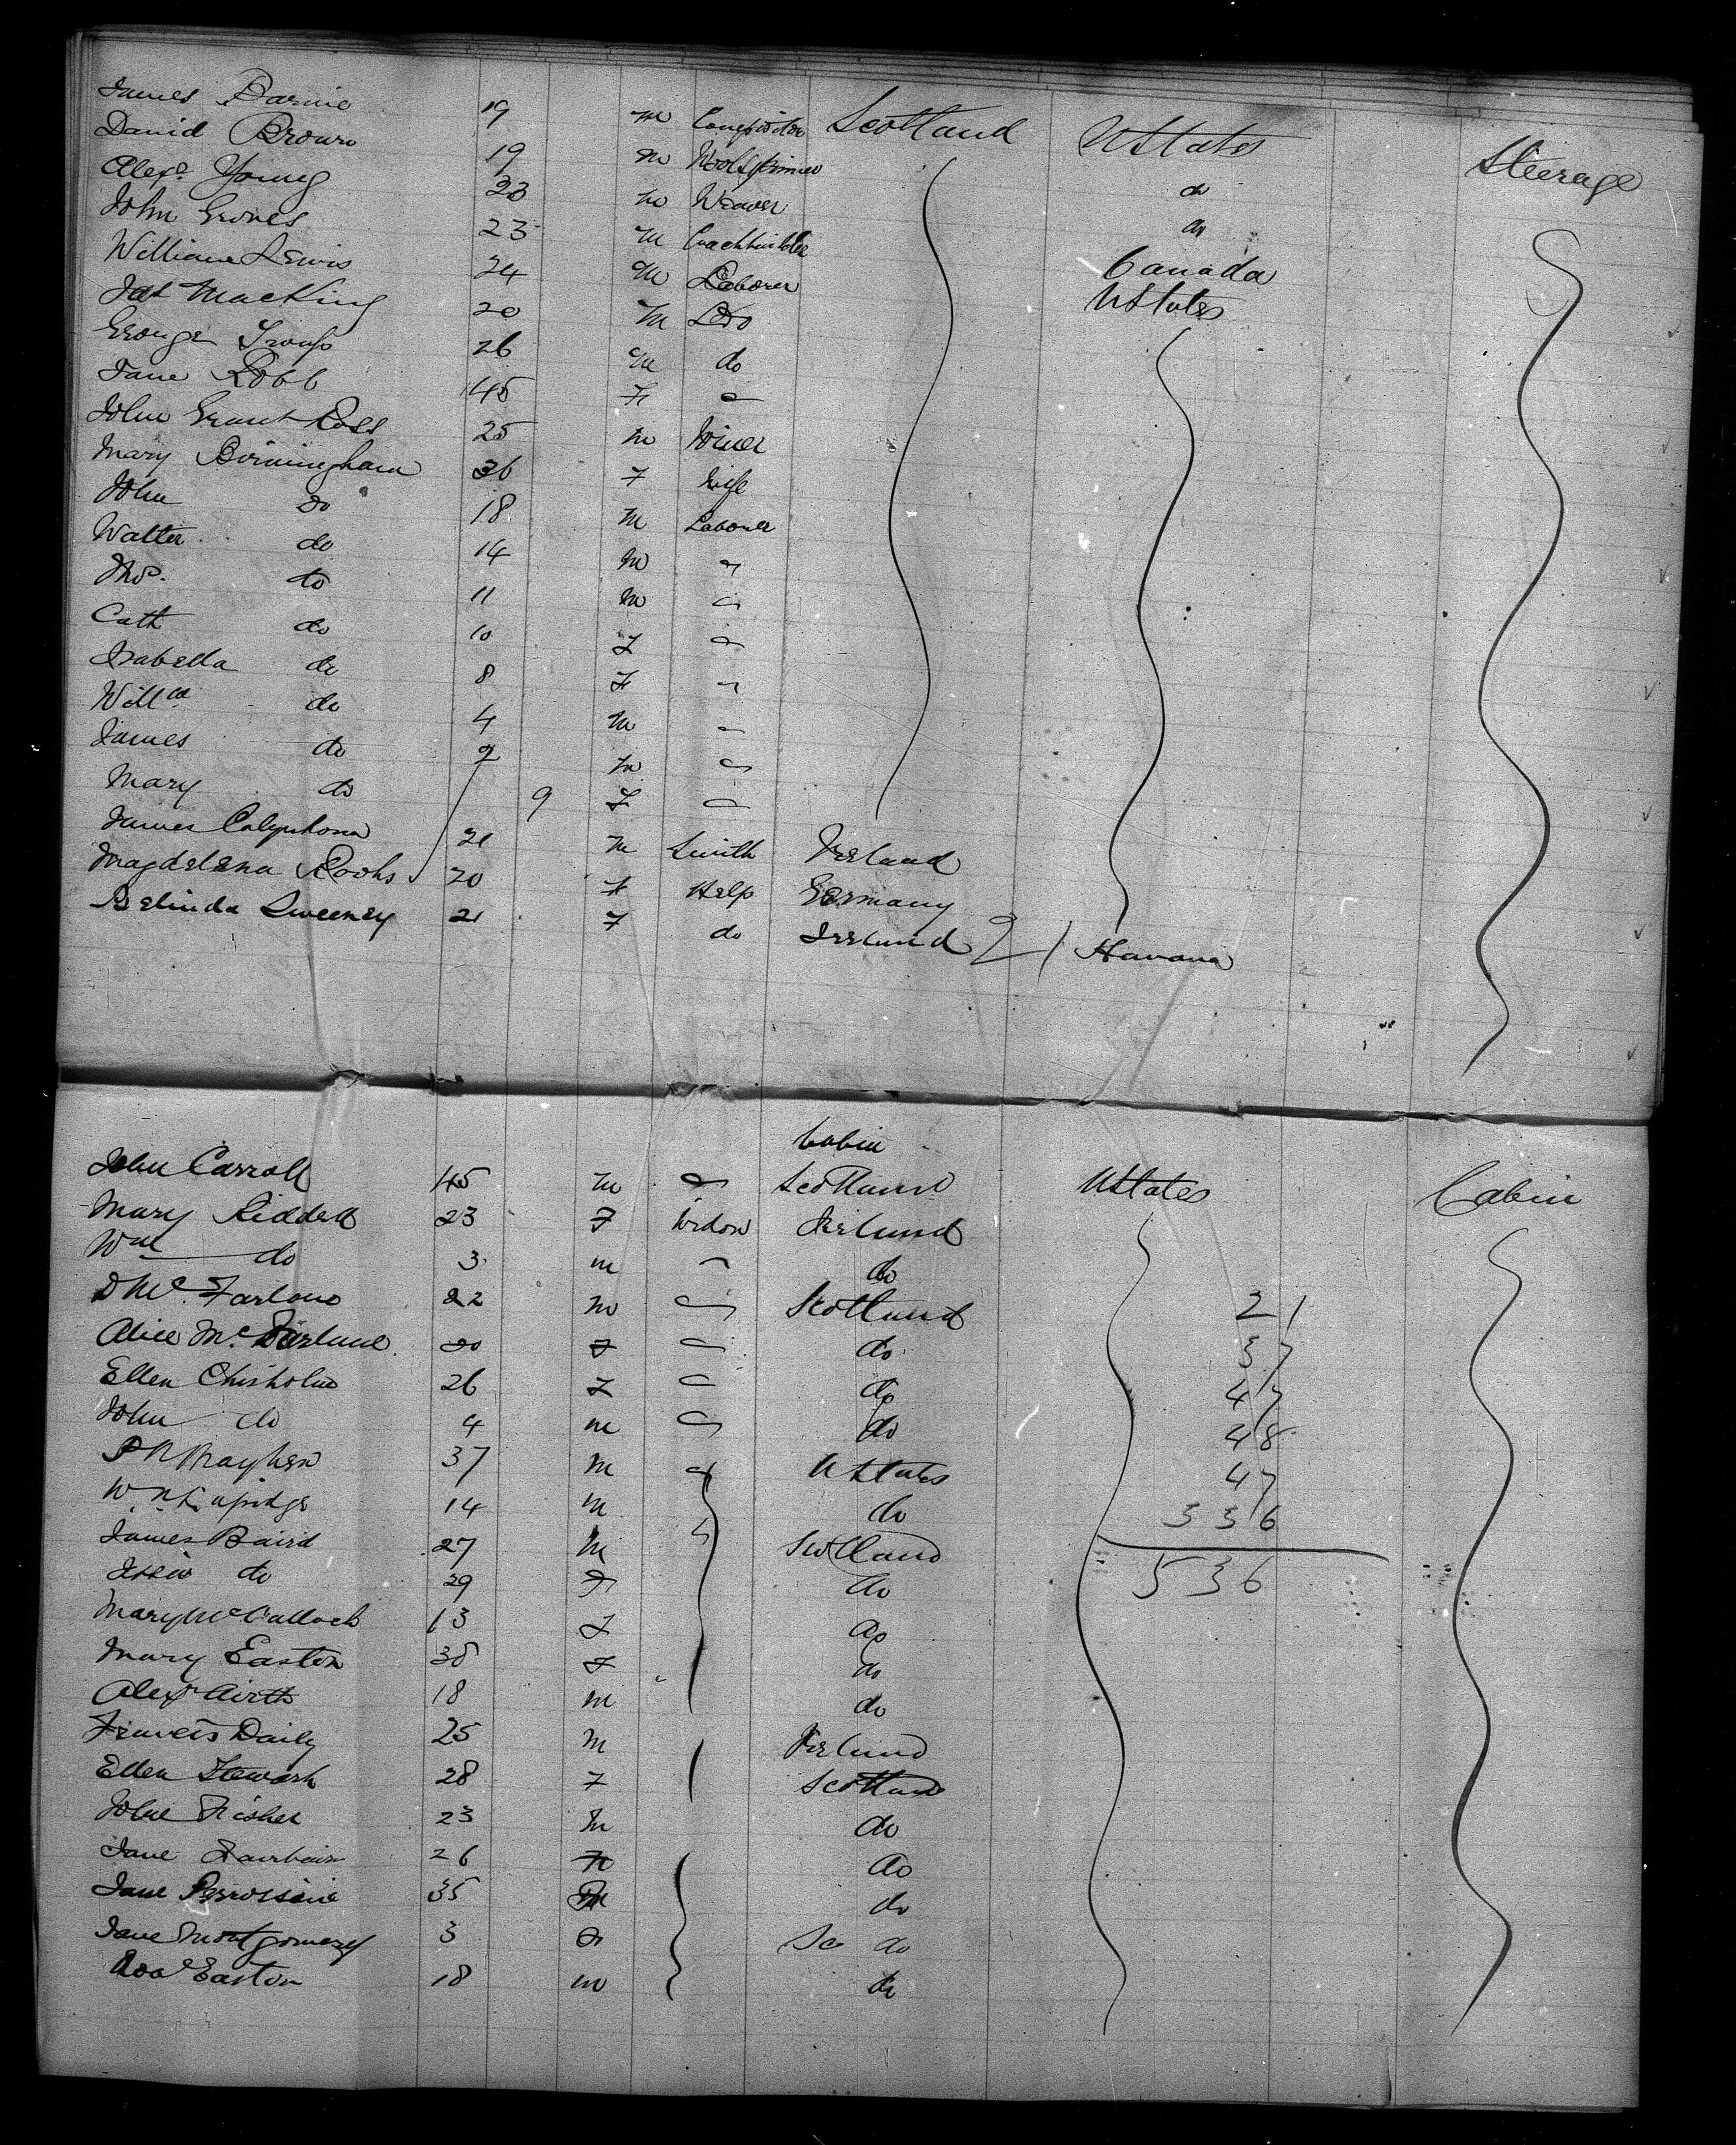 James 19 m Compositor Scotland UStates Steerage
David Brown 19 m Woolspinner do
Alexr. Young 23 m Weaver do
John Groves 23 m Coachbuilder Canada
William Lewis 24 m Laborer UStates
Jas MacKing 20 m Do
George Troup 26 m do
Jane Robb 45 F "
John Grant Ross 25 m Joiner
Mary Birmingham 36 F Wife
John do 18 m Laborer
Walter do 14 m "
Thos. do 11 m "
Cath do 10 F "
Isabella do 8 F "
Willm do 4 m "
James do 2 m "
Mary do 9 F "
James 21 m Smith Ireland
Magdelena Roohs 20 F Help Germany
Belinda Sweeney 21 F do Ireland 21 Havana
Cabin
John Carroll 45 m " Scotland UStates Cabin
Mary Riddell 23 F Widow Ireland
Wm do 3 m " do
D Mc. Farlane 22 m " Scotland 21
Alice Mc. Farlane 20 F " do 37
Ellen Chisholm 26 F " do 47
John do 4 m " do 48
Mayhew 37 m " UStates 47
W. N. 14 m do 336
James Baird 27 m Scotland
536
Jessie do 29 F do
Mary McCulloch 13 F do
Mary Easton 38 F do
Alexr Airth 18 m do
Francis Daily 25 m Ireland
Ellen Stewart 28 F Scotland
John Fisher 23 m do
Jane Fairbairn 26 F do
Jane 35 do
Jane Montgomery 3 F Sc do
Easton 18 m do